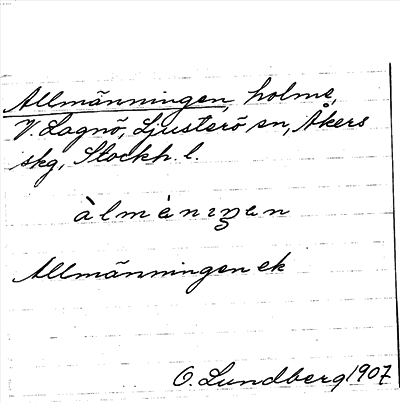 Allmänningen, holme,
V. Lagnö, Ljusterö sn, Åkers
skg, Stockh. l.
àlmènıŋen
Allmänningen ek
O. Lundberg 1907